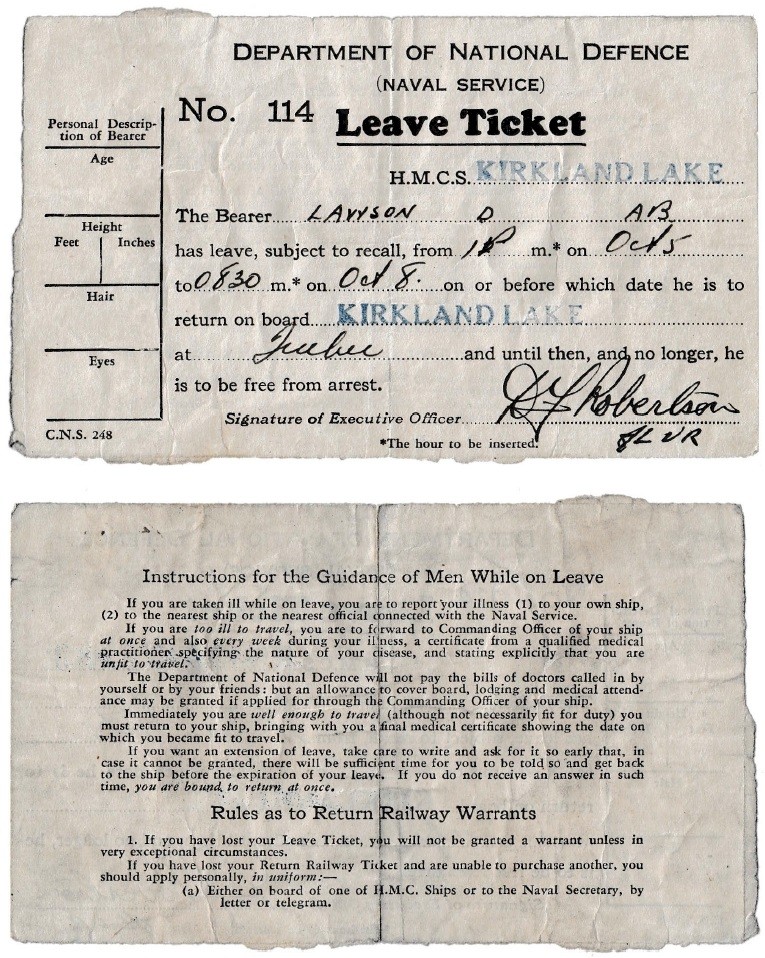 DEPARTMENT OF NATIONAL DEFENCE
(NAVAL SERVICE)
No. 114 Leave Ticket
Personal Descrip-
tion of Bearer
Age
Height
Feet Inches
Hair
Eyes
C.N.S. 248
H.M.C.S. KIRKLAND LAKE
The Bearer LAWSON D AB
has leave, subject to recall, from m.* on Oct 5
to 0830 m.* on Oct 8. on or before which date he is to
return on board KIRKLAND LAKE
at and until then, and no longer, he
is to be free from arrest.
Signature of Executive Officer Robertson
*The hour to be inserted.
Instructions for the Guidance of Men While on Leave
If you are taken ill while on leave, you are to report your illness (1) to your own ship,
(2) to the nearest ship or the nearest official connected with the Naval Service.
If you are too ill to travel, you are to forward to Commanding Officer of your ship
at once and also every week during your illness, a certificate from a qualified medical
practitioner specifying the nature of your disease, and stating explicitly that you are
unfit to travel.
The Department of National Defence will not pay the bills of doctors called in by
yourself or by your friends: but an allowance to cover board, lodging and medical attend-
ance may be granted if applied for through the Commanding Officer of your ship.
Immediately you are well enough to travel (although not necessarily fit for duty) you
must return to your ship, bringing with you a final medical certificate showing the date on
which you became fit to travel.
If you want an extension of leave, take care to write and ask for it so early that, in
case it cannot be granted, there will be sufficient time for you to be told so and get back
to the ship before the expiration of your leave. If you do not receive an answer in such
time, you are bound to return at once.
Rules as to Return Railway Warrants
1. If you have lost your Leave Ticket, you will not be granted a warrant unless in
very exceptional circumstances.
If you have lost your Return Railway Ticket and are unable to purchase another, you
should apply personally, in uniform:—
(a) Either on board of one of H.M.C. Ships or to the Naval Secretary, by
letter or telegram.